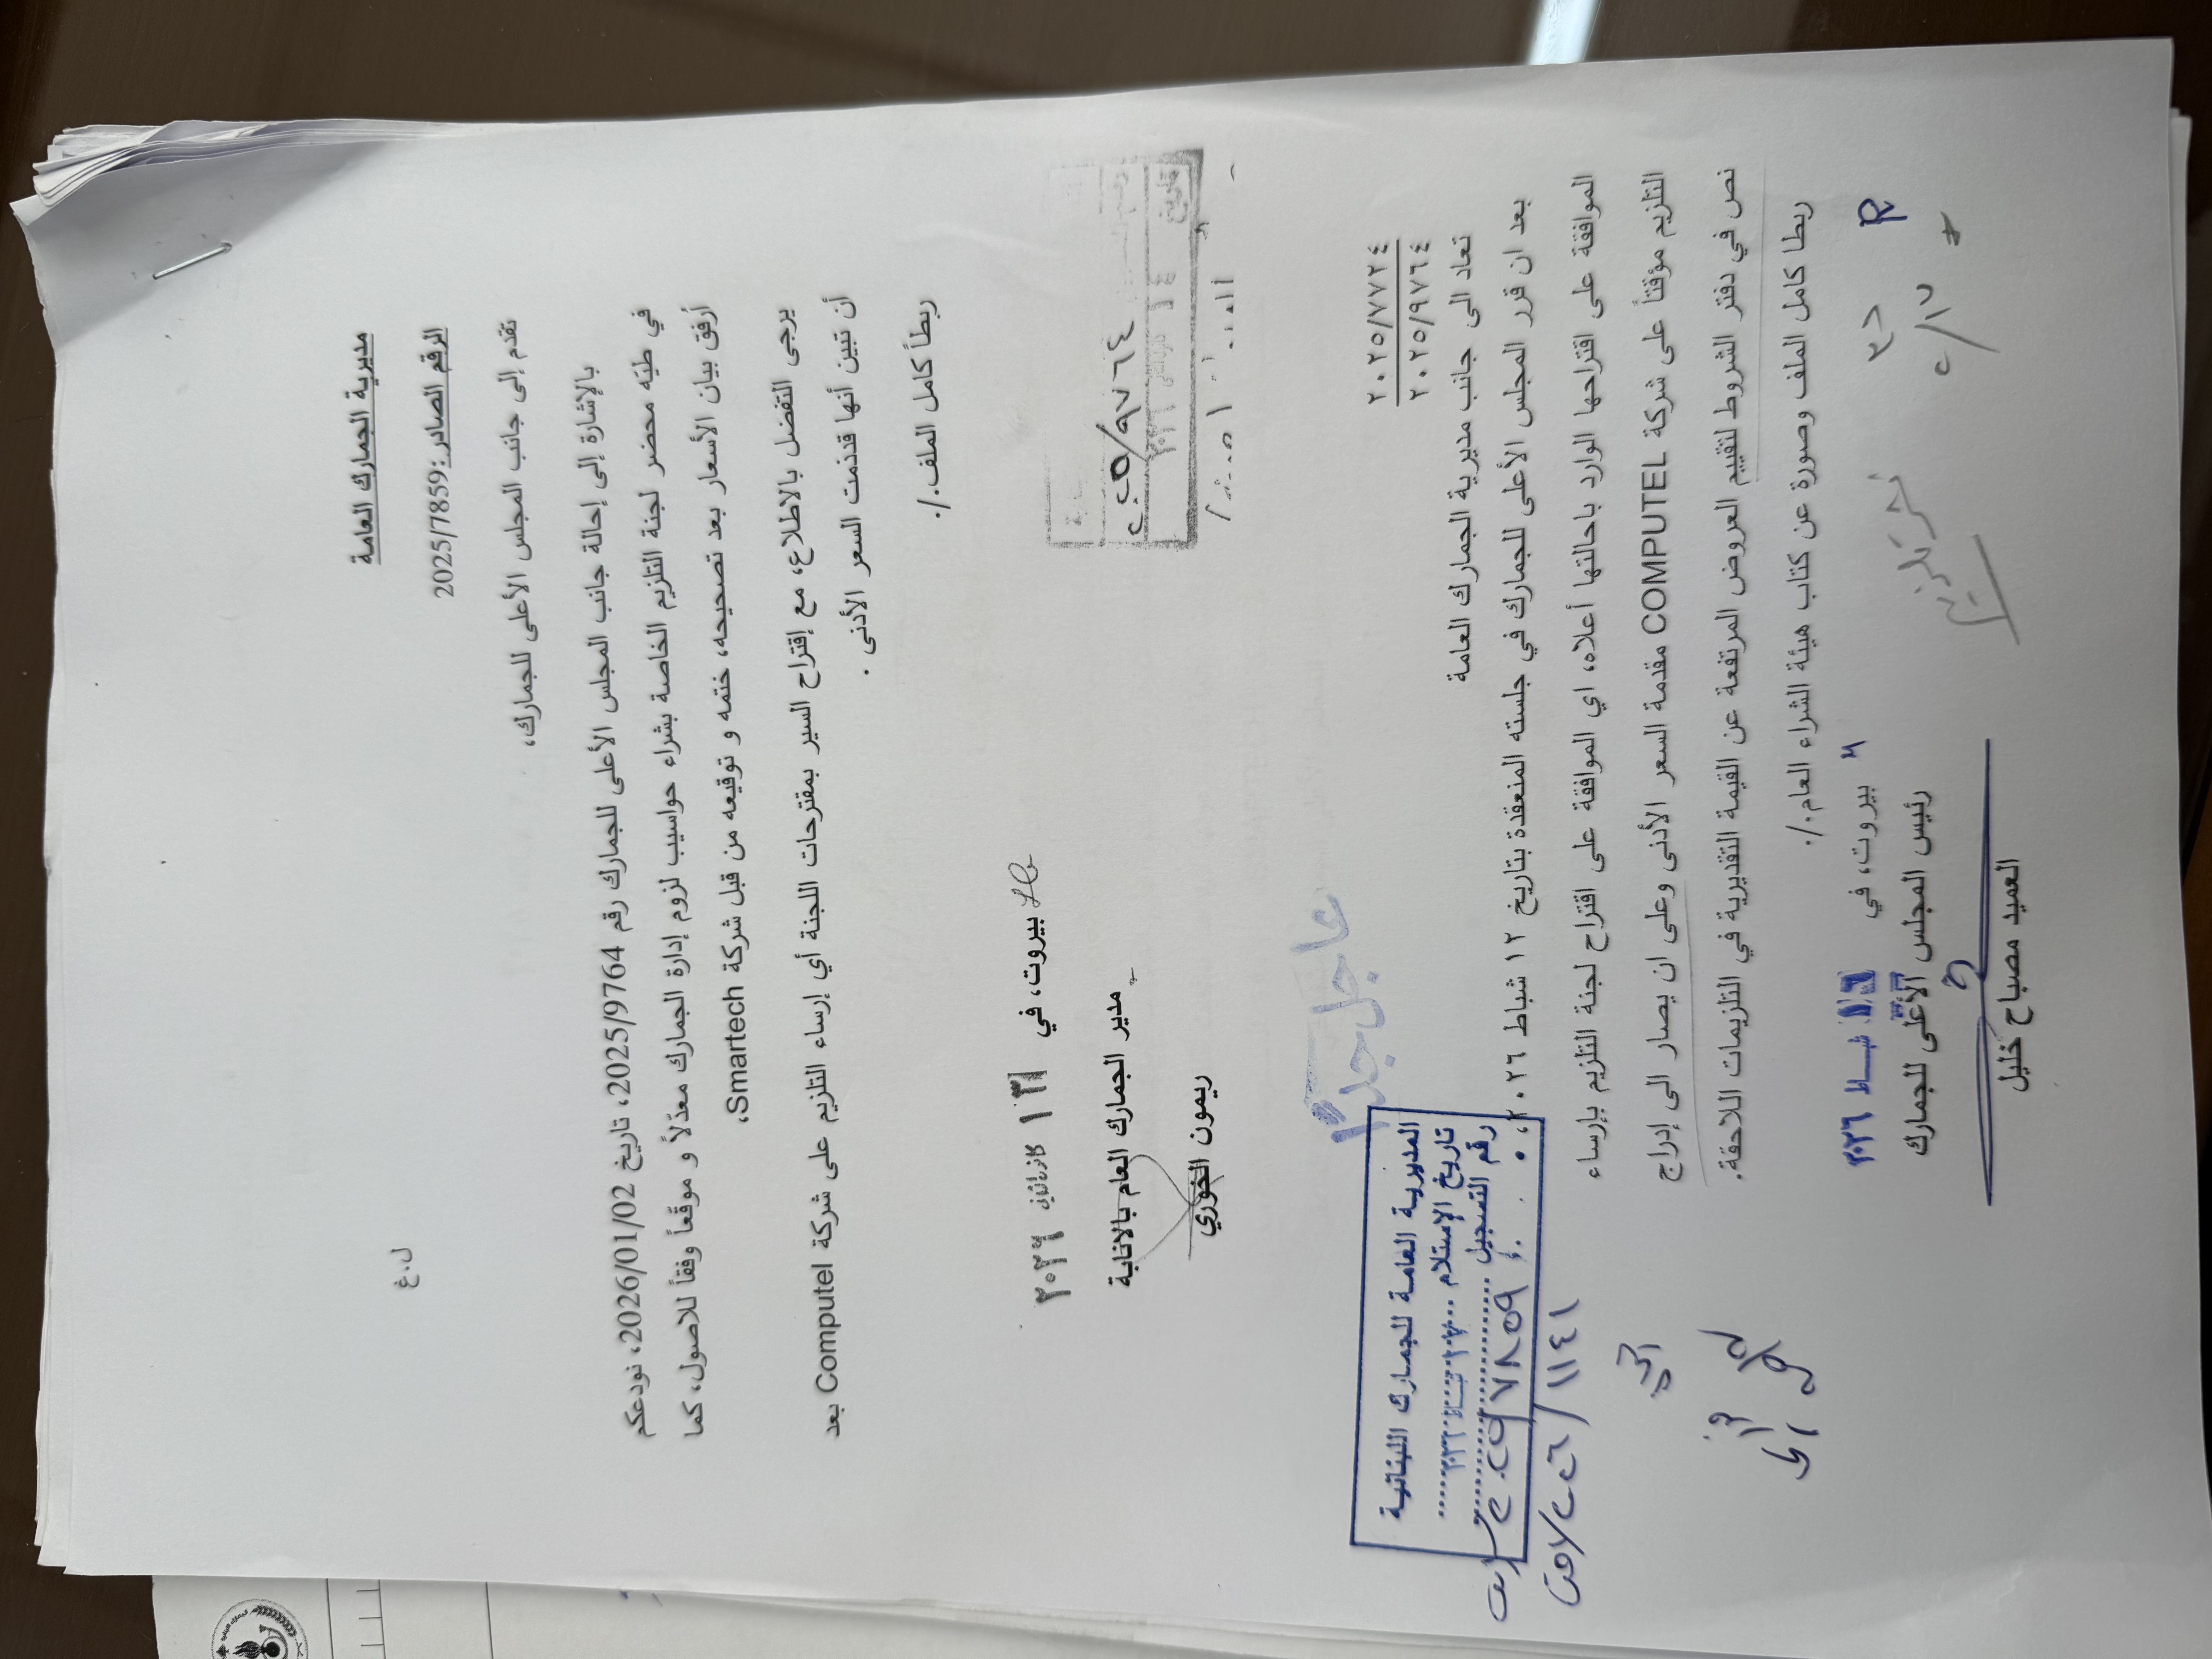 مديرية الجمارك العامة
ل.غ
الرقم الصادر: 2025/7859
تقدم إلى جانب المجلس الأعلى للجمارك،
بالإشارة إلى إحالة جانب المجلس الأعلى للجمارك رقم 2025/9764، تاريخ 2026/01/02، نودعكم
في طيّه محضر لجنة التلزيم الخاصة بشراء حواسيب لزوم إدارة الجمارك معدّلاً و موقّعاً وفقاً للاصول، كما
أرفق بيان الأسعار بعد تصحيحه، ختمه و توقيعه من قبل شركة Smartech،
يرجى التفضل بالاطلاع، مع إقتراح السير بمقترحات اللجنة أي إرساء التلزيم على شركة Computel بعد
أن تبين أنها قدّمت السعر الأدنى .
ربطاً كامل الملف./.
بيروت، في ١٣ كانون الثاني ٢٠٢٦
مدير الجمارك العام بالانابة
ريمون الخوري
٢٠٢٥/٩٧٦٤
تاريخ
عاجل جداً
٢٠٢٥/٧٧٢٤
٢٠٢٥/٩٧٦٤
تعاد الى جانب مديرية الجمارك العامة
بعد ان قرر المجلس الأعلى للجمارك في جلسته المنعقدة بتاريخ ١٢ شباط ٢٠٢٦،
الموافقة على اقتراحها الوارد باحالتها أعلاه، اي الموافقة على اقتراح لجنة التلزيم بإرساء
التلزيم مؤقتاً على شركة COMPUTEL مقدمة السعر الأدنى وعلى ان يصار الى إدراج
نص في دفتر الشروط لتقييم العروض المرتفعة عن القيمة التقديرية في التلزيمات اللاحقة.
ربطا كامل الملف وصورة عن كتاب هيئة الشراء العام./.
المديرية العامة للجمارك اللبنانية
تاريخ الإستلام
رقم التسجيل ٢٠٢٥/٧٨٥٩
٢٠٢٦/١١٤١
بيروت، في شباط ٢٠٢٦
رئيس المجلس الأعلى للجمارك
العميد مصباح خليل